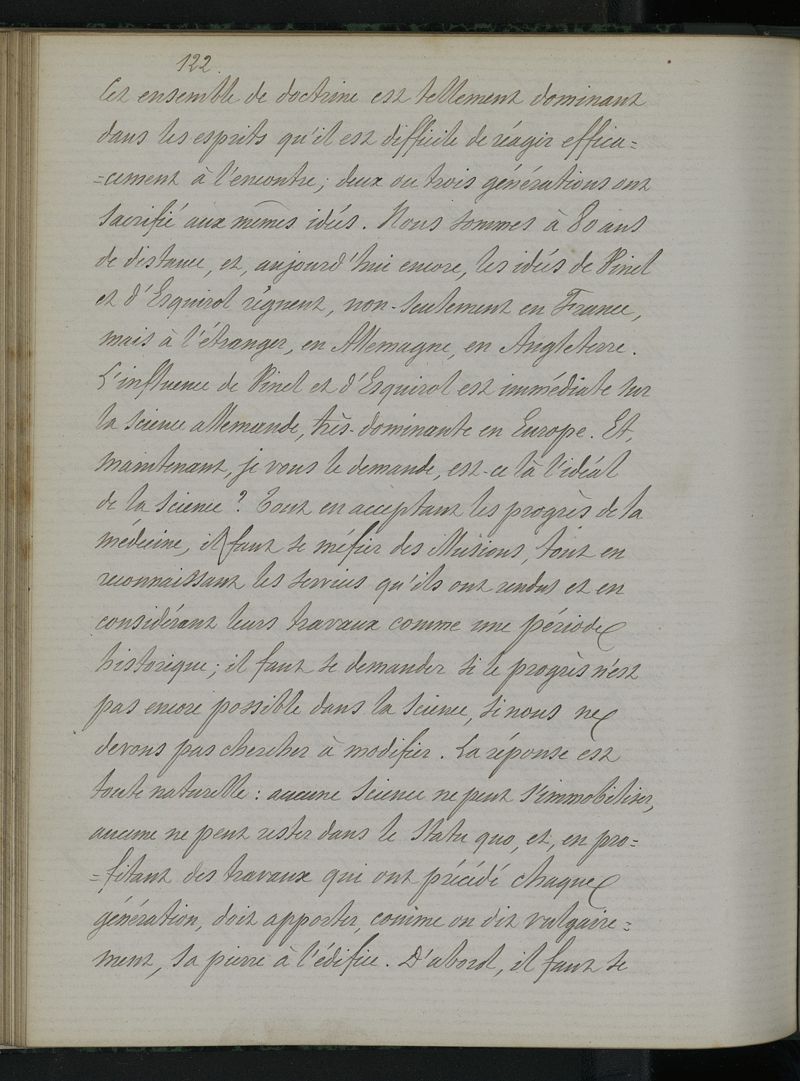 122.
Cet ensemble de doctrine est tellement dominant
dans les esprits qu'il est difficile de réagir effica=
=cement à l'encontre; deux ou trois générations ont
sacrifié aux mêmes idées. Nous sommes à 80 ans
de distance, et, aujourd'hui encore, les idées de Pinel
et d'Esquirol règnent, non-seulement en France,
mais à l'étranger, en Allemagne, en Angleterre.
L'influence de Pinel et d'Esquirol est immédiate sur
la science allemande, très-dominante en Europe. Et,
maintenant, je vous le demande, est-ce là l'idéal
de la science? Tout en acceptant les progrès de la
médecine, il faut se méfier des illusions, tout en
reconnaissant les services qu'ils ont rendus et en
considérant leurs travaux comme une période
historique; il faut se demander si le progrès n'est
pas encore possible dans la science, si nous ne
devons pas chercher à modifier. La réponse est
toute naturelle: aucune science ne peut s'immobiliser,
aucune ne peut rester dans le statu quo, et, en pro=
=fitant des travaux qui ont précédé chaque
génération, doit apporter, comme on dit vulgaire=
ment, sa pierre à l'édifice. D'abord, il faut se